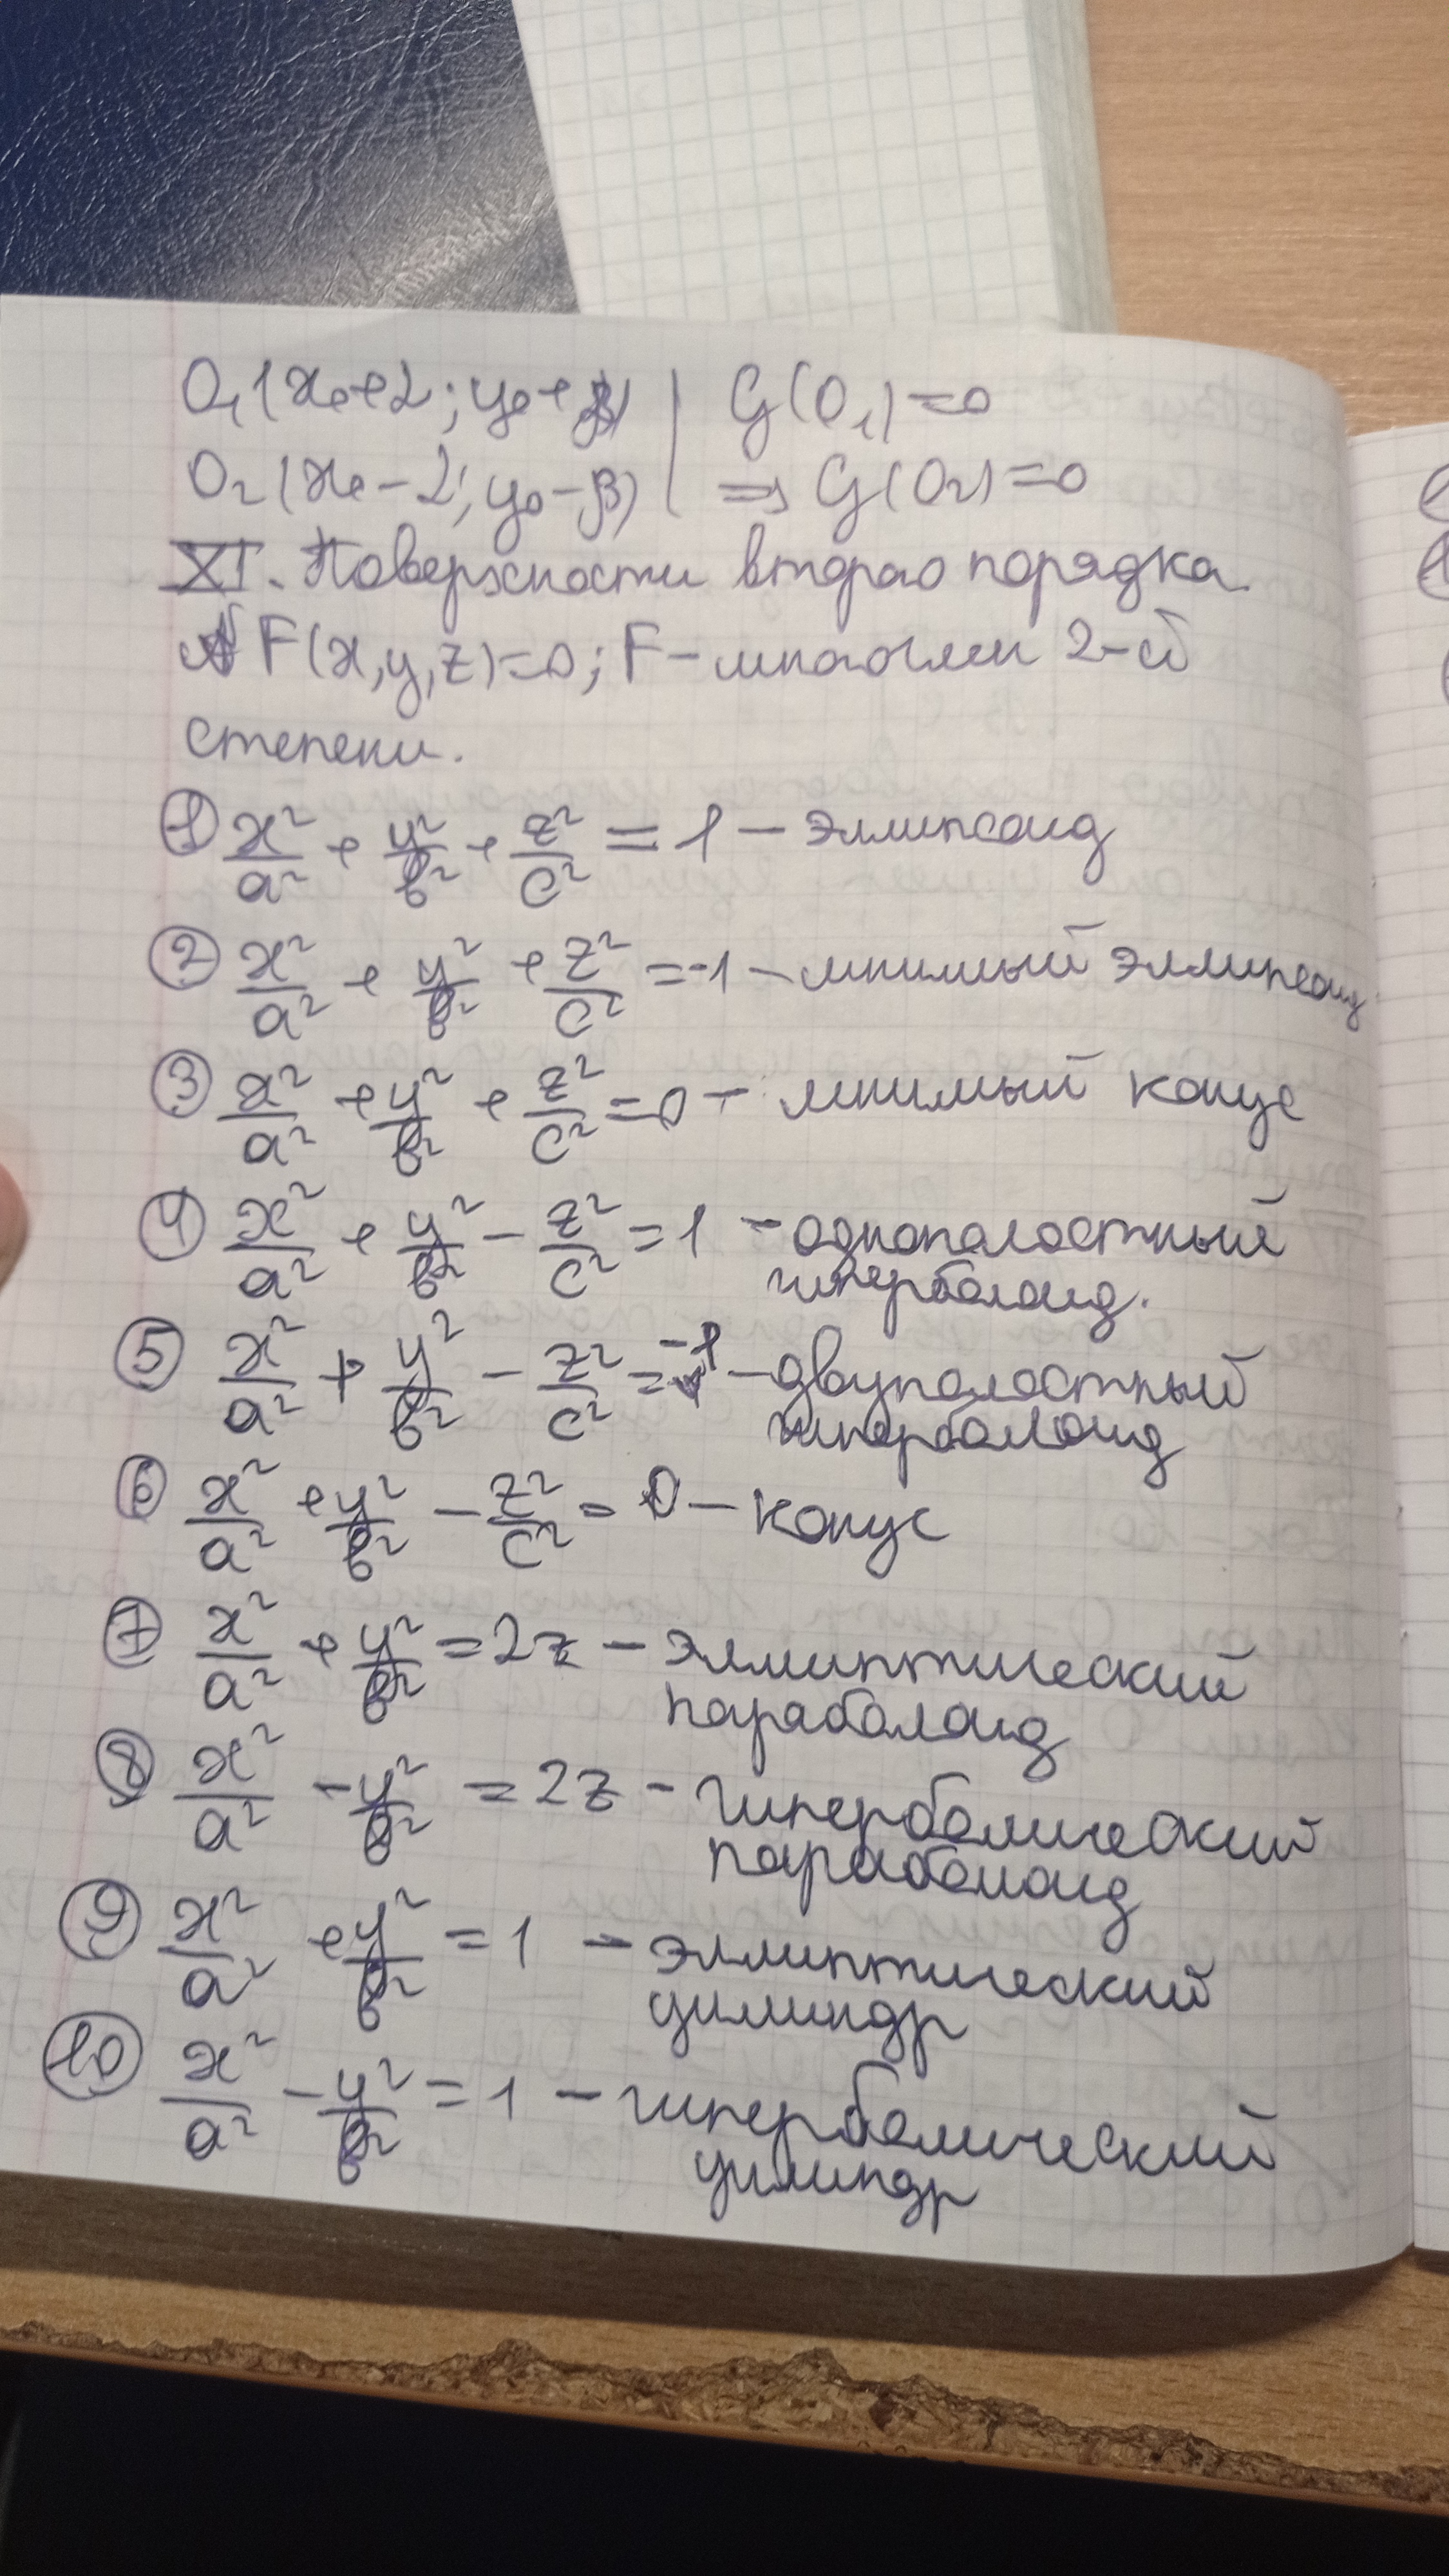 O₁(x₀+α; y₀+β) | G(O₁)=0
O₂(x₀-α; y₀-β) | ⇒ G(O₂)=0
XI. Поверхности второго порядка.
F(x,y,z)=0; F - многочлен 2-ой
степени.
① x²/a² + y²/b² + z²/c² = 1 - эллипсоид
② x²/a² + y²/b² + z²/c² = -1 - мнимый эллипсоид
③ x²/a² + y²/b² + z²/c² = 0 - мнимый конус
④ x²/a² + y²/b² - z²/c² = 1 - однополостный
гиперболоид.
⑤ x²/a² + y²/b² - z²/c² = -1 - двуполостный
гиперболоид
⑥ x²/a² + y²/b² - z²/c² = 0 - конус
⑦ x²/a² + y²/b² = 2z - эллиптический
параболоид
⑧ x²/a² - y²/b² = 2z - гиперболический
параболоид
⑨ x²/a² + y²/b² = 1 - эллиптический
цилиндр
⑩ x²/a² - y²/b² = 1 - гиперболический
цилиндр